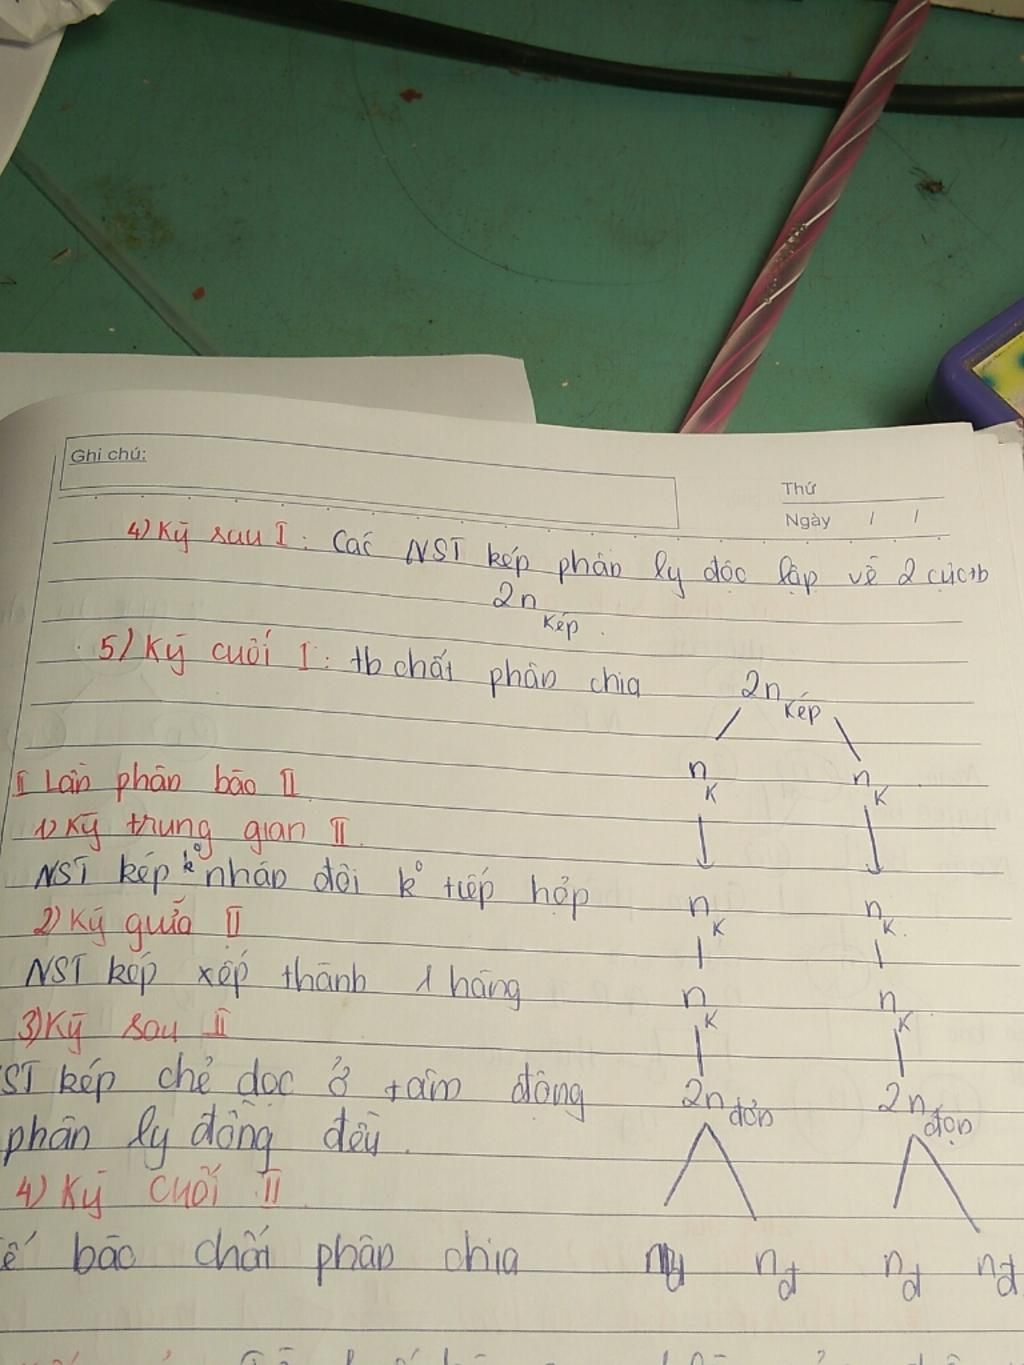 Ghi chú:
Thứ
Ngày / /
4) Kỳ sau I : Các NST kép phân ly độc lập về 2 cực tb
2n kép.
5) Kỳ cuối I : tb chất phân chia 2n kép
n K n K
II Lần phân bào II
1) Kỳ trung gian II.
NST kép k° nhân đôi k° tiếp hợp
n K n K.
2) Kỳ giữa II
NST kép xếp thành 1 hàng
n K n K
3) Kỳ sau II
ST kép chẻ dọc ở tâm động
2n đơn 2n đơn
phân ly đồng đều.
4) Kỳ cuối II
ế bào chất phân chia
nđ nđ nđ nđ